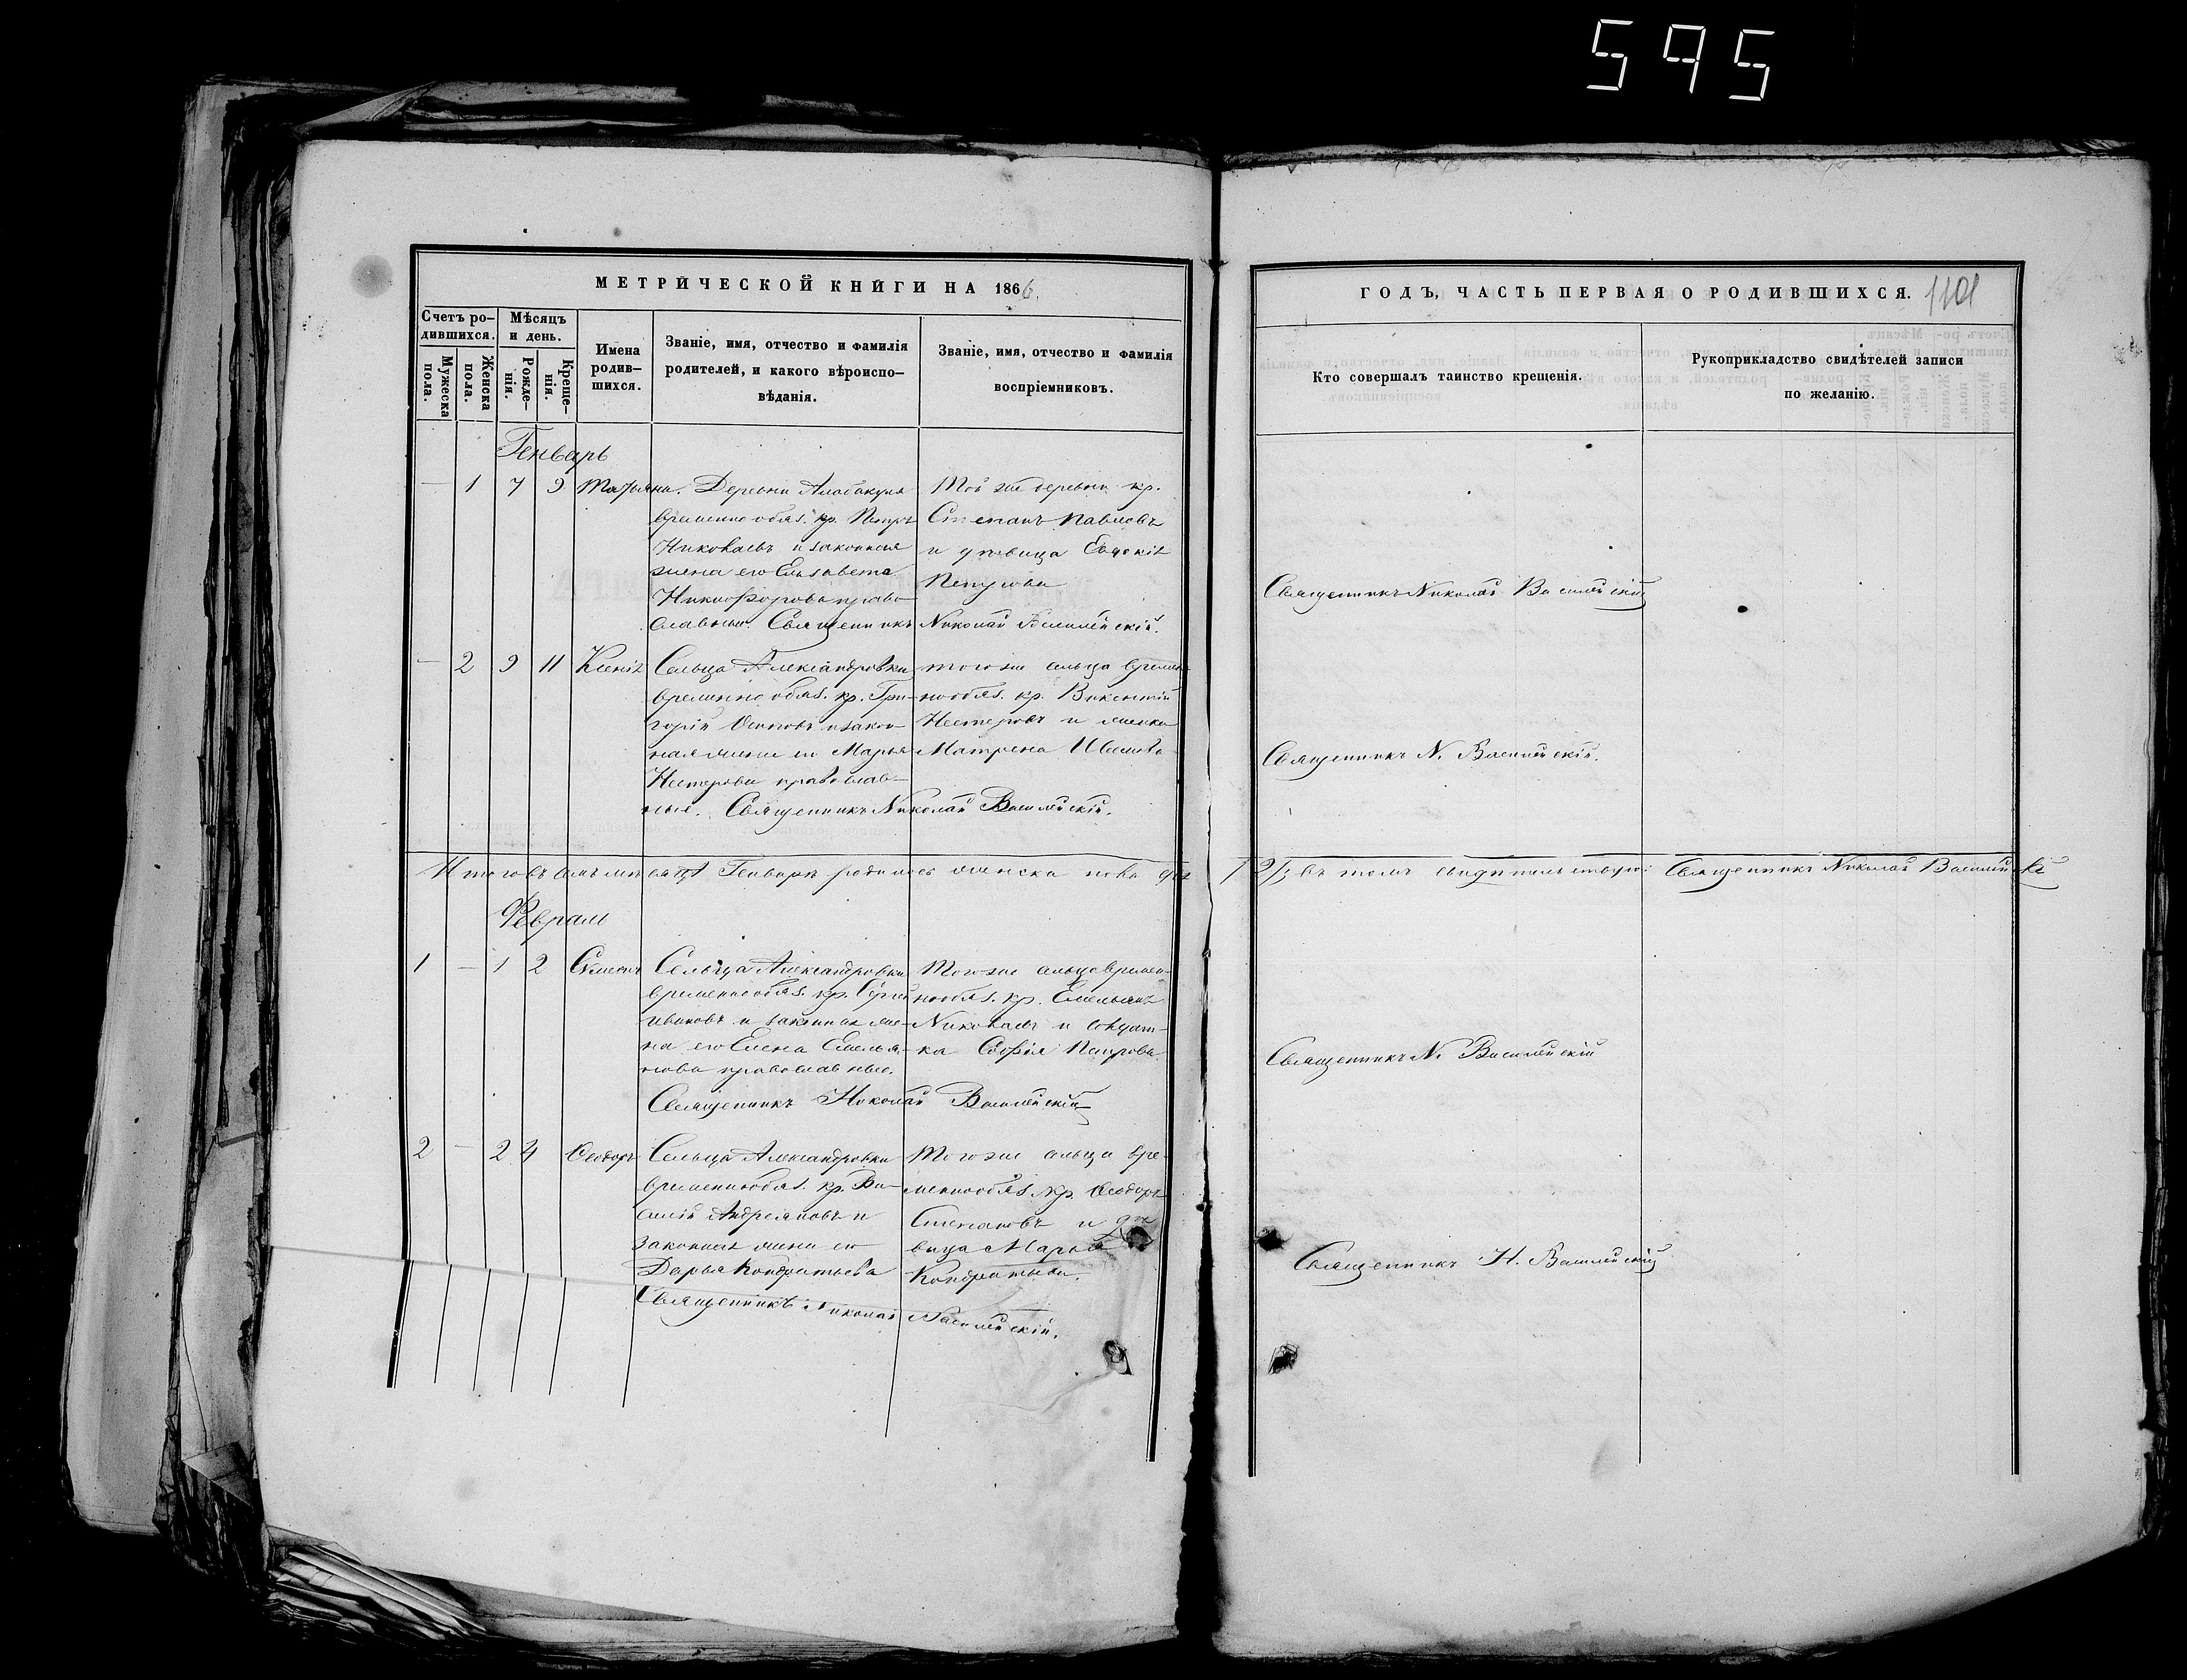 595
МЕТРИЧЕСКОЙ КНИГИ НА 1866.
Счетъ ро-
дившихся.
Мѣсяцъ
и день.
Мужеска
пола.
Женска
пола.
Рожде-
нія.
Креще-
нія.
Имена
родив-
шихся.
Званіе, имя, отчество и фамилія
родителей, и какого вѣроиспо-
вѣданія.
Званіе, имя, отчество и фамилія
воспріемниковъ.
Генварь
— 1 7 9 Татьяна. Деревни
временнообяз. кр. Петръ
Николаевъ и законная
жена его Елизавета
Никифорова право-
славные. Священникъ
Той же деревни кр.
Степанъ Павловъ
и дѣвица Евдокія
Петрова
Николай Василейскій.
— 2 9 11 Ксенія Сельца Александровки
временно обяз. кр. Гри-
горій Осиповъ и закон-
ная жена его Марья
Нестерова православ-
ные. Священникъ Николай Василейскій.
того же сельца времен-
нообяз. кр. Викентій
Нестеровъ и женка
Матрена
Итого въ семъ мѣсяцѣ Генварѣ родилось женска пола двѣ
Февраль
1 — 1 2 Симеонъ Сельца Александровки
временнообяз. кр.
Ивановъ и законная же-
на его Елена Емелья-
нова православные.
Священникъ Николай Василейскій
Того же сельца времен-
нообяз. кр. Емельянъ
Николаевъ и солдат-
ка Софія Петрова
2 — 2 4 Ѳеодоръ Сельца Александровки
временнообяз. кр. Ва-
силій Андреяновъ и
законная жена его
Дарья Кондратьева
Священникъ Николай Василейскій.
Того же сельца вре-
меннообяз. кр. Ѳеодоръ
Степановъ и дѣ-
вица Марья
Кондратьева.
ГОДЪ, ЧАСТЬ ПЕРВАЯ О РОДИВШИХСЯ.
Кто совершалъ таинство крещенія.
Рукоприкладство свидѣтелей записи
по желанію.
Священникъ Николай Василейскій
Священникъ N. Василейскій.
/2/, въ томъ свидѣтельствую: Священникъ Николай Василейскій
Священникъ N. Василейскій
Священникъ Н. Василейскій